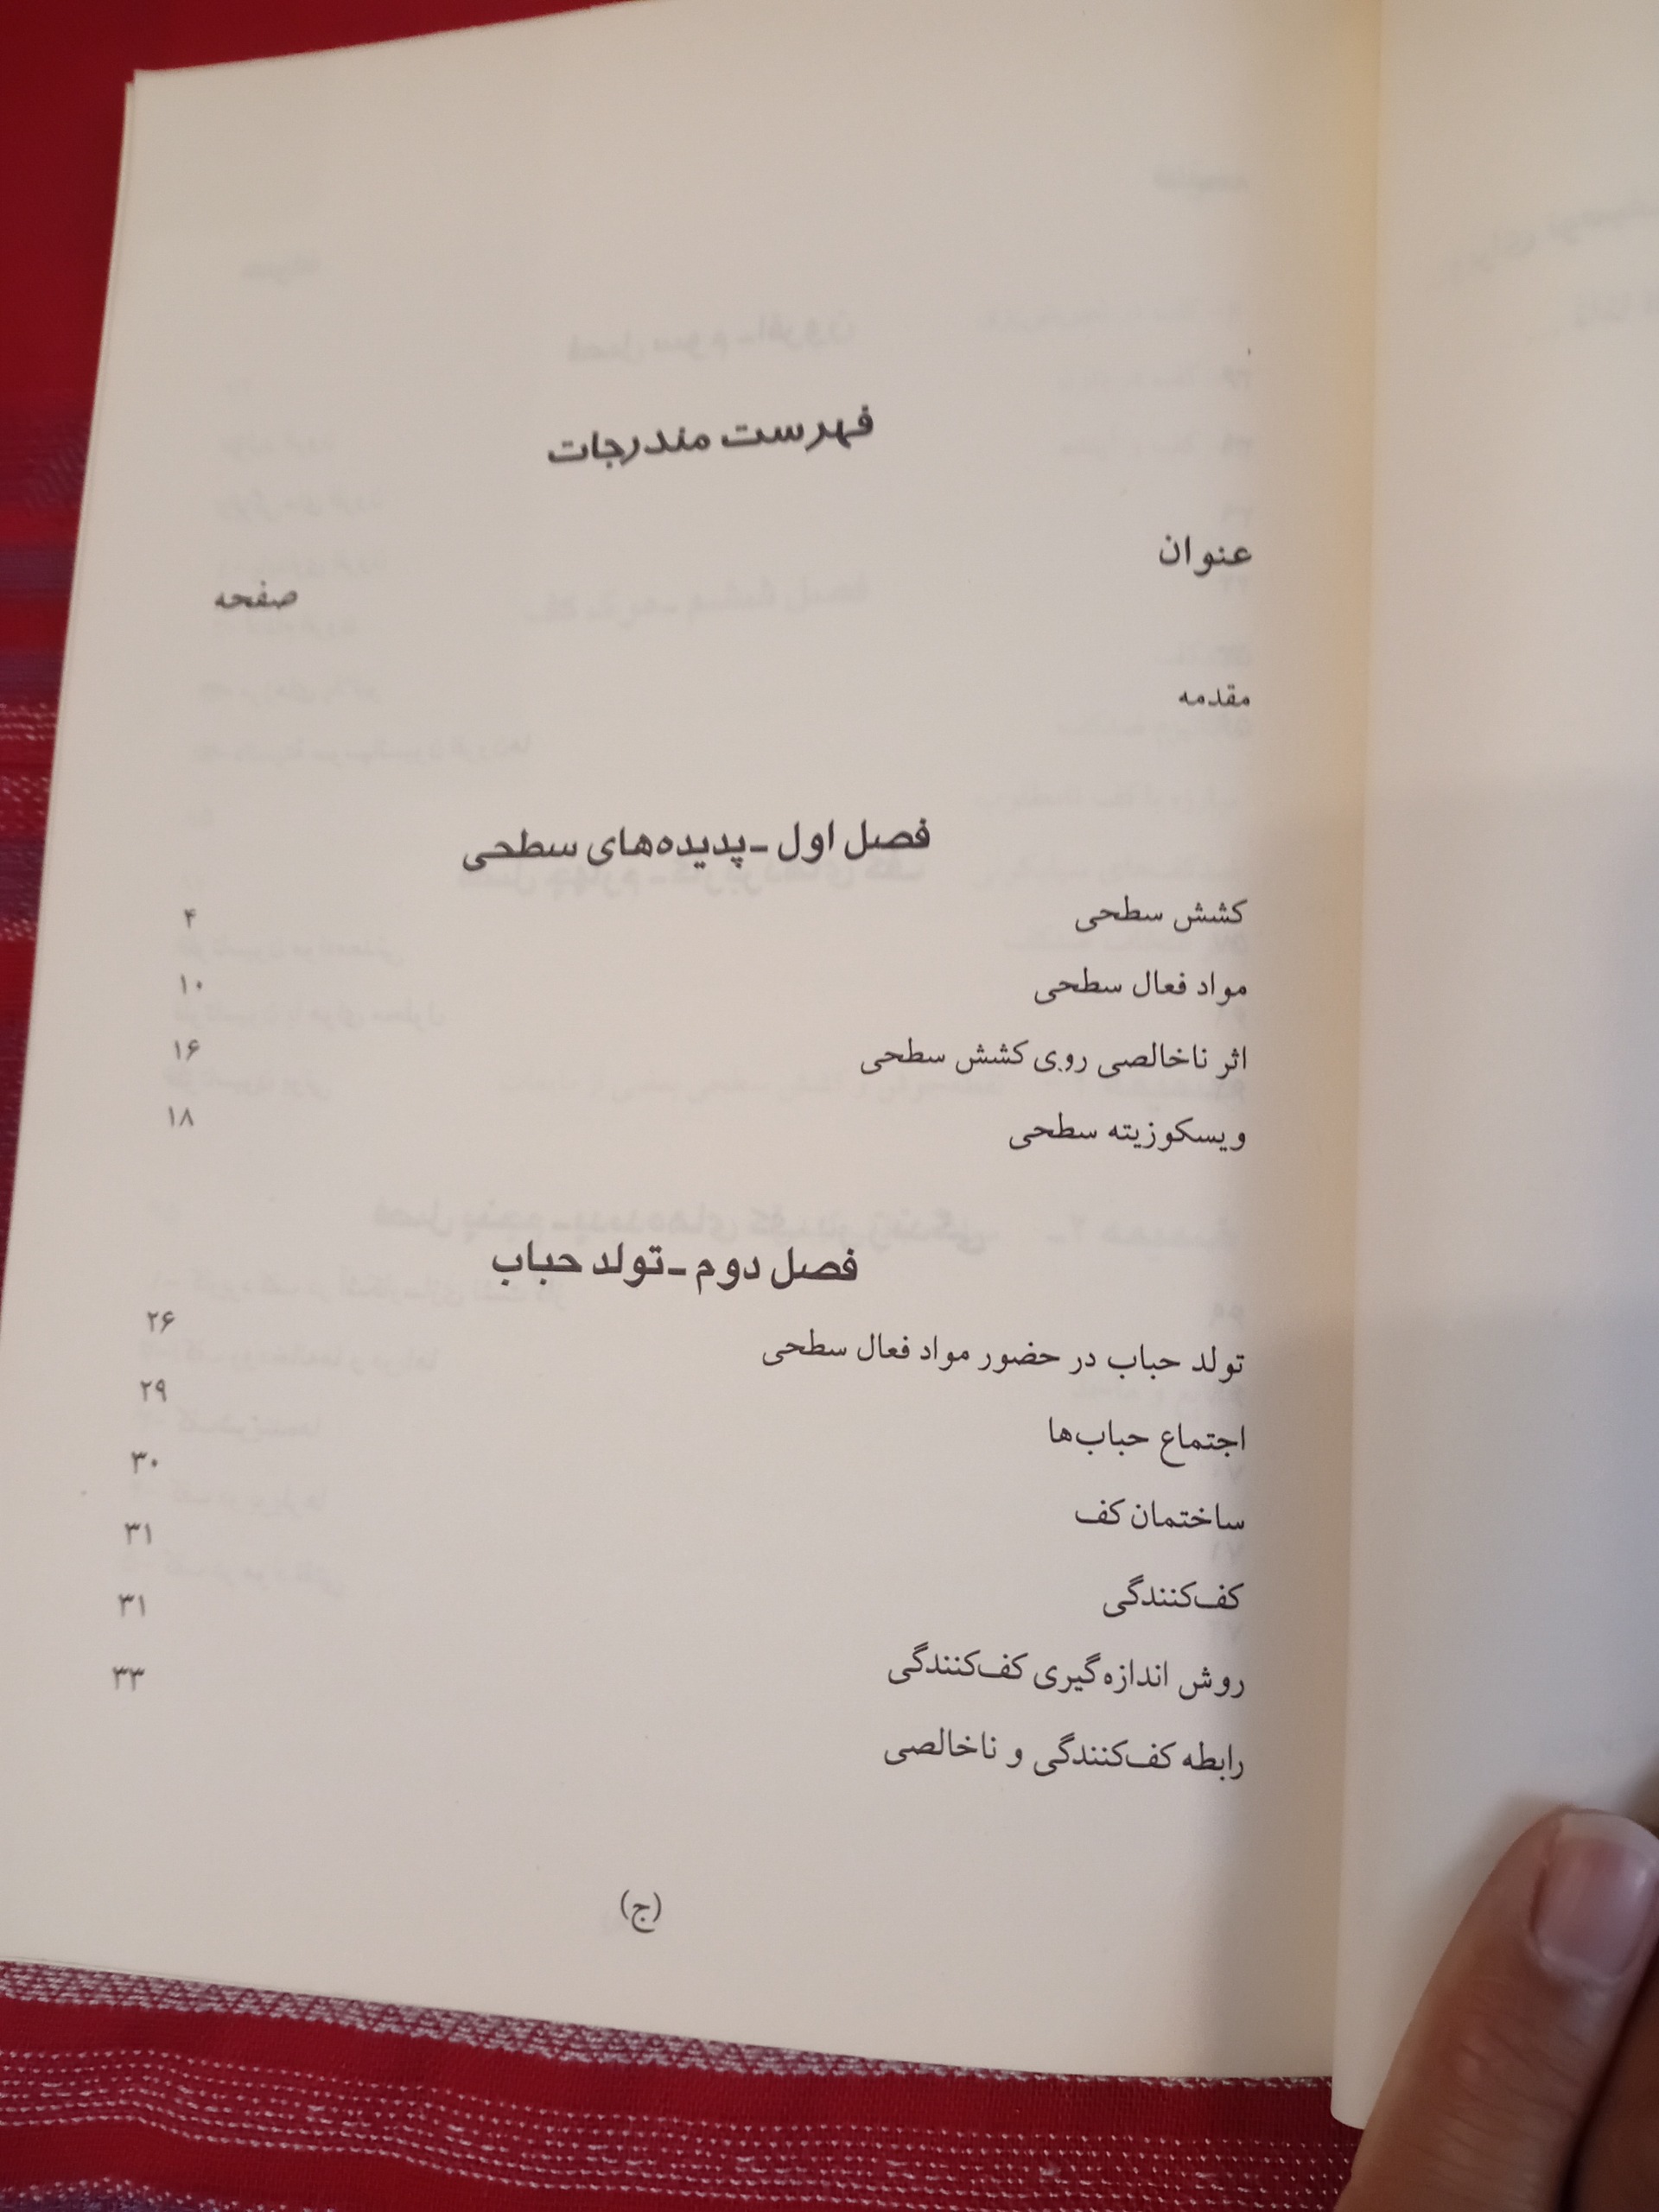 فهرست مندرجات
عنوان
صفحه
مقدمه
فصل اول ـ پدیده‌های سطحی
کشش سطحی ۴
مواد فعال سطحی ۱۰
اثر ناخالصی روی کشش سطحی ۱۶
ویسکوزیته سطحی ۱۸
فصل دوم ـ تولد حباب
تولد حباب در حضور مواد فعال سطحی ۲۶
اجتماع حباب‌ها ۲۹
ساختمان کف ۳۰
کف‌کنندگی ۳۱
روش اندازه‌گیری کف‌کنندگی ۳۱
رابطه کف‌کنندگی و ناخالصی ۳۳
(ج)